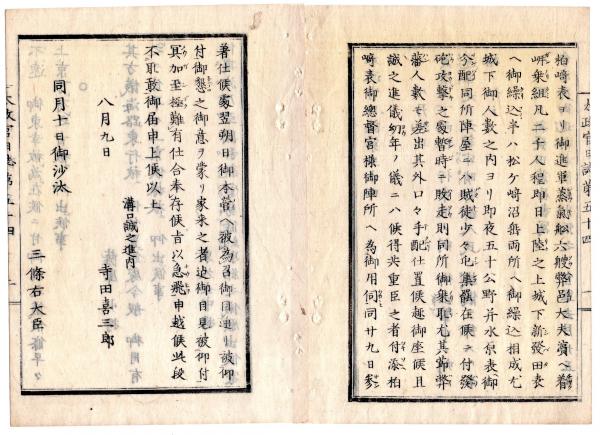 柏崎表ヨリ御進軍蒸氣船六艘弊邑大夫濱ヘ着
岸乗組凡二千人程即日上陸之上城下新發田表
ヘ御繰込半ハ松ケ崎沼埀両所ヘ御繰込相成尤
城下御人数之内ヨリ即夜五十公野并水原表御
分配同所陣屋ニハ賊徒少々屯集罷在候ニ付發
砲攻撃之處暫時ニ敗走則同所御乗取尤其節弊
藩人数モ差出其外口々手配仕置候趣御座候且
誠之進儀幼年ノ儀ニハ候得共重臣之者付添柏
崎表御總督宮様御陣所ヘ為御用伺同廿九日参
太政官日誌第五十四
着仕候處翌朔日御本營ヘ被為召御目通リ被仰
付御懇之御意ヲ蒙リ家来之者迠御目見被仰付
冥加至極難有仕合奉存候旨以急飛申越候此段
不取敢御届申上候以上
溝口誠之進内
八月九日 寺田喜三郎
同月十日御沙汰
三條右大臣
太政官日誌第五十四